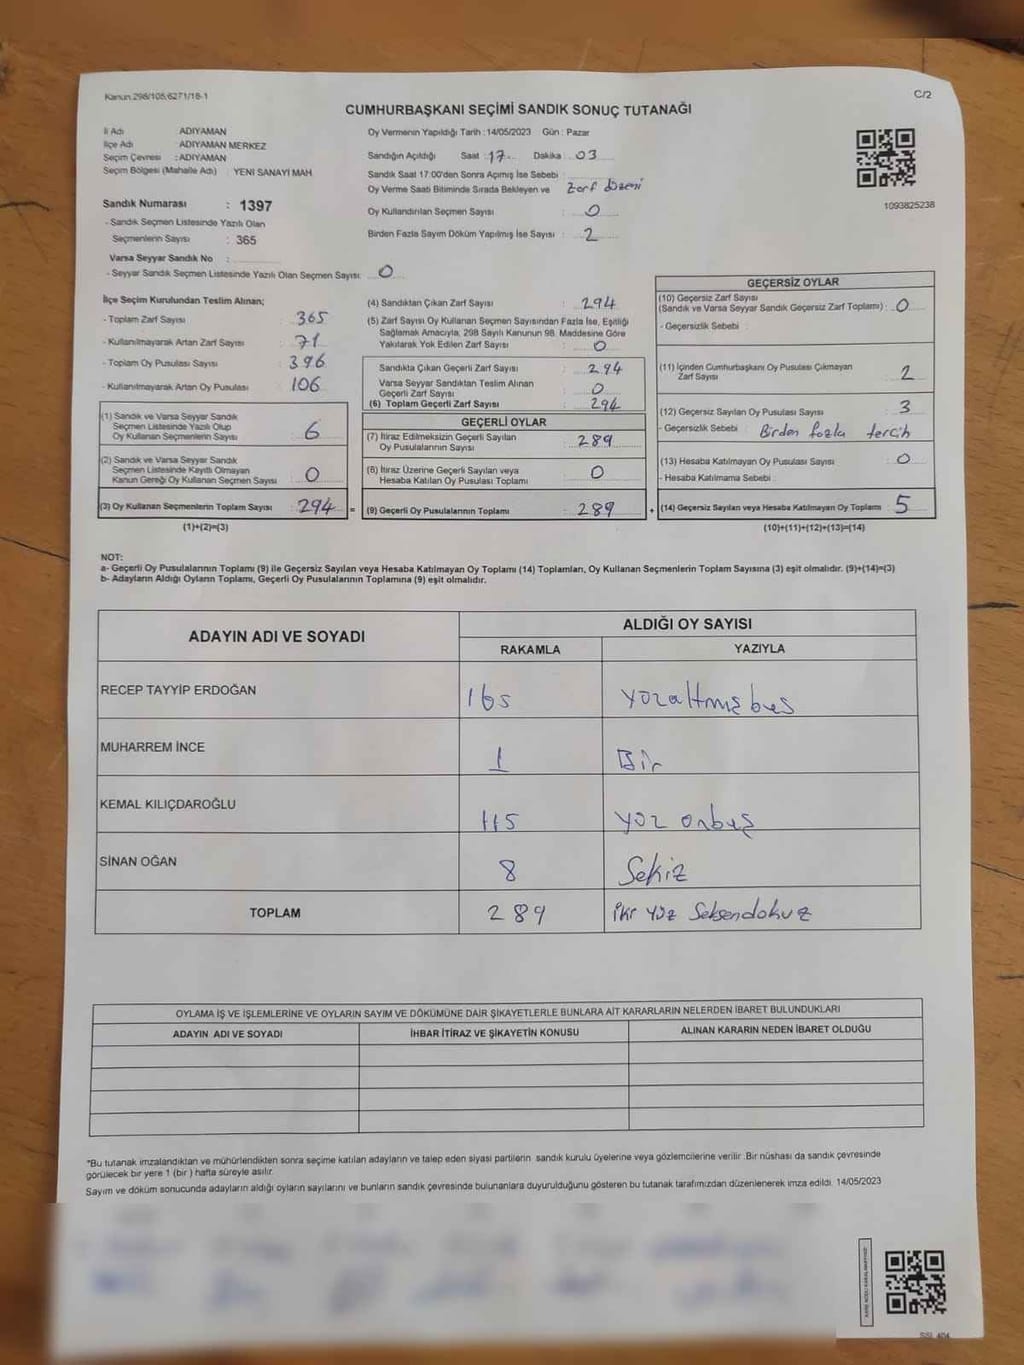 Kanun.298/105,6271/18-1
C/2
CUMHURBAŞKANI SEÇİMİ SANDIK SONUÇ TUTANAĞI
İl Adı ADIYAMAN
İlçe Adı ADIYAMAN MERKEZ
Seçim Çevresi : ADIYAMAN
Seçim Bölgesi (Mahalle Adı) : YENİ SANAYİ MAH
Oy Vermenin Yapıldığı Tarih : 14/05/2023 Gün : Pazar
Sandığın Açıldığı Saat : 17 Dakika : 03
Sandık Saat 17:00'den Sonra Açımış İse Sebebi :
Oy Verme Saati Bitiminde Sırada Bekleyen ve Zarf düzeni
Oy Kullandırılan Seçmen Sayısı : 0
Birden Fazla Sayım Döküm Yapılmış İse Sayısı : 2
1093825238
Sandık Numarası : 1397
- Sandık Seçmen Listesinde Yazılı Olan
Seçmenlerin Sayısı : 365
Varsa Seyyar Sandık No :
- Seyyar Sandık Seçmen Listesinde Yazılı Olan Seçmen Sayısı: 0
İlçe Seçim Kurulundan Teslim Alınan;
- Toplam Zarf Sayısı : 365
- Kullanılmayarak Artan Zarf Sayısı : 71
- Toplam Oy Pusulası Sayısı : 396
- Kullanılmayarak Artan Oy Pusulası : 106
(1) Sandık ve Varsa Seyyar Sandık
Seçmen Listesinde Yazılı Olup
Oy Kullanan Seçmenlerin Sayısı : 6
(2) Sandık ve Varsa Seyyar Sandık
Seçmen Listesinde Kayıtlı Olmayan
Kanun Gereği Oy Kullanan Seçmen Sayısı : 0
(3) Oy Kullanan Seçmenlerin Toplam Sayısı : 294 =
(1)+(2)=(3)
(4) Sandıktan Çıkan Zarf Sayısı : 294
(5) Zarf Sayısı Oy Kullanan Seçmen Sayısından Fazla İse, Eşitliği
Sağlamak Amacıyla, 298 Sayılı Kanunun 98. Maddesine Göre
Yakılarak Yok Edilen Zarf Sayısı : 0
Sandıkta Çıkan Geçerli Zarf Sayısı : 294
Varsa Seyyar Sandıktan Teslim Alınan
Geçerli Zarf Sayısı : 0
(6) Toplam Geçerli Zarf Sayısı : 294
GEÇERLİ OYLAR
(7) İtiraz Edilmeksizin Geçerli Sayılan
Oy Pusulalarının Sayısı : 289
(8) İtiraz Üzerine Geçerli Sayılan veya
Hesaba Katılan Oy Pusulası Toplamı : 0
(9) Geçerli Oy Pusulalarının Toplamı : 289 +
GEÇERSİZ OYLAR
(10) Geçersiz Zarf Sayısı
(Sandık ve Varsa Seyyar Sandık Geçersiz Zarf Toplamı) : 0
- Geçersizlik Sebebi :
(11) İçinden Cumhurbaşkanı Oy Pusulası Çıkmayan
Zarf Sayısı : 2
(12) Geçersiz Sayılan Oy Pusulası Sayısı : 3
- Geçersizlik Sebebi : Birden fazla tercih
(13) Hesaba Katılmayan Oy Pusulası Sayısı : 0
- Hesaba Katılmama Sebebi :
(14) Geçersiz Sayılan veya Hesaba Katılmayan Oy Toplamı : 5
(10)+(11)+(12)+(13)=(14)
NOT:
a- Geçerli Oy Pusulalarının Toplamı (9) ile Geçersiz Sayılan veya Hesaba Katılmayan Oy Toplamı (14) Toplamları, Oy Kullanan Seçmenlerin Toplam Sayısına (3) eşit olmalıdır. (9)+(14)=(3)
b- Adayların Aldığı Oyların Toplamı, Geçerli Oy Pusulalarının Toplamına (9) eşit olmalıdır.
ADAYIN ADI VE SOYADI
ALDIĞI OY SAYISI
RAKAMLA YAZIYLA
RECEP TAYYİP ERDOĞAN 165 yüzaltmış beş
MUHARREM İNCE 1 Bir
KEMAL KILIÇDAROĞLU 115 yüz onbeş
SİNAN OĞAN 8 Sekiz
TOPLAM 289 iki yüz Seksendokuz
OYLAMA İŞ VE İŞLEMLERİNE VE OYLARIN SAYIM VE DÖKÜMÜNE DAİR ŞİKAYETLERLE BUNLARA AİT KARARLARIN NELERDEN İBARET BULUNDUKLARI
ADAYIN ADI VE SOYADI İHBAR İTİRAZ VE ŞİKAYETİN KONUSU ALINAN KARARIN NEDEN İBARET OLDUĞU
*Bu tutanak imzalandıktan ve mühürlendikten sonra seçime katılan adayların ve talep eden siyasi partilerin sandık kurulu üyelerine veya gözlemcilerine verilir. Bir nüshası da sandık çevresinde
görülecek bir yere 1 (bir ) hafta süreyle asılır.
Sayım ve döküm sonucunda adayların aldığı oyların sayılarını ve bunların sandık çevresinde bulunanlara duyurulduğunu gösteren bu tutanak tarafımızdan düzenlenerek imza edildi. 14/05/2023